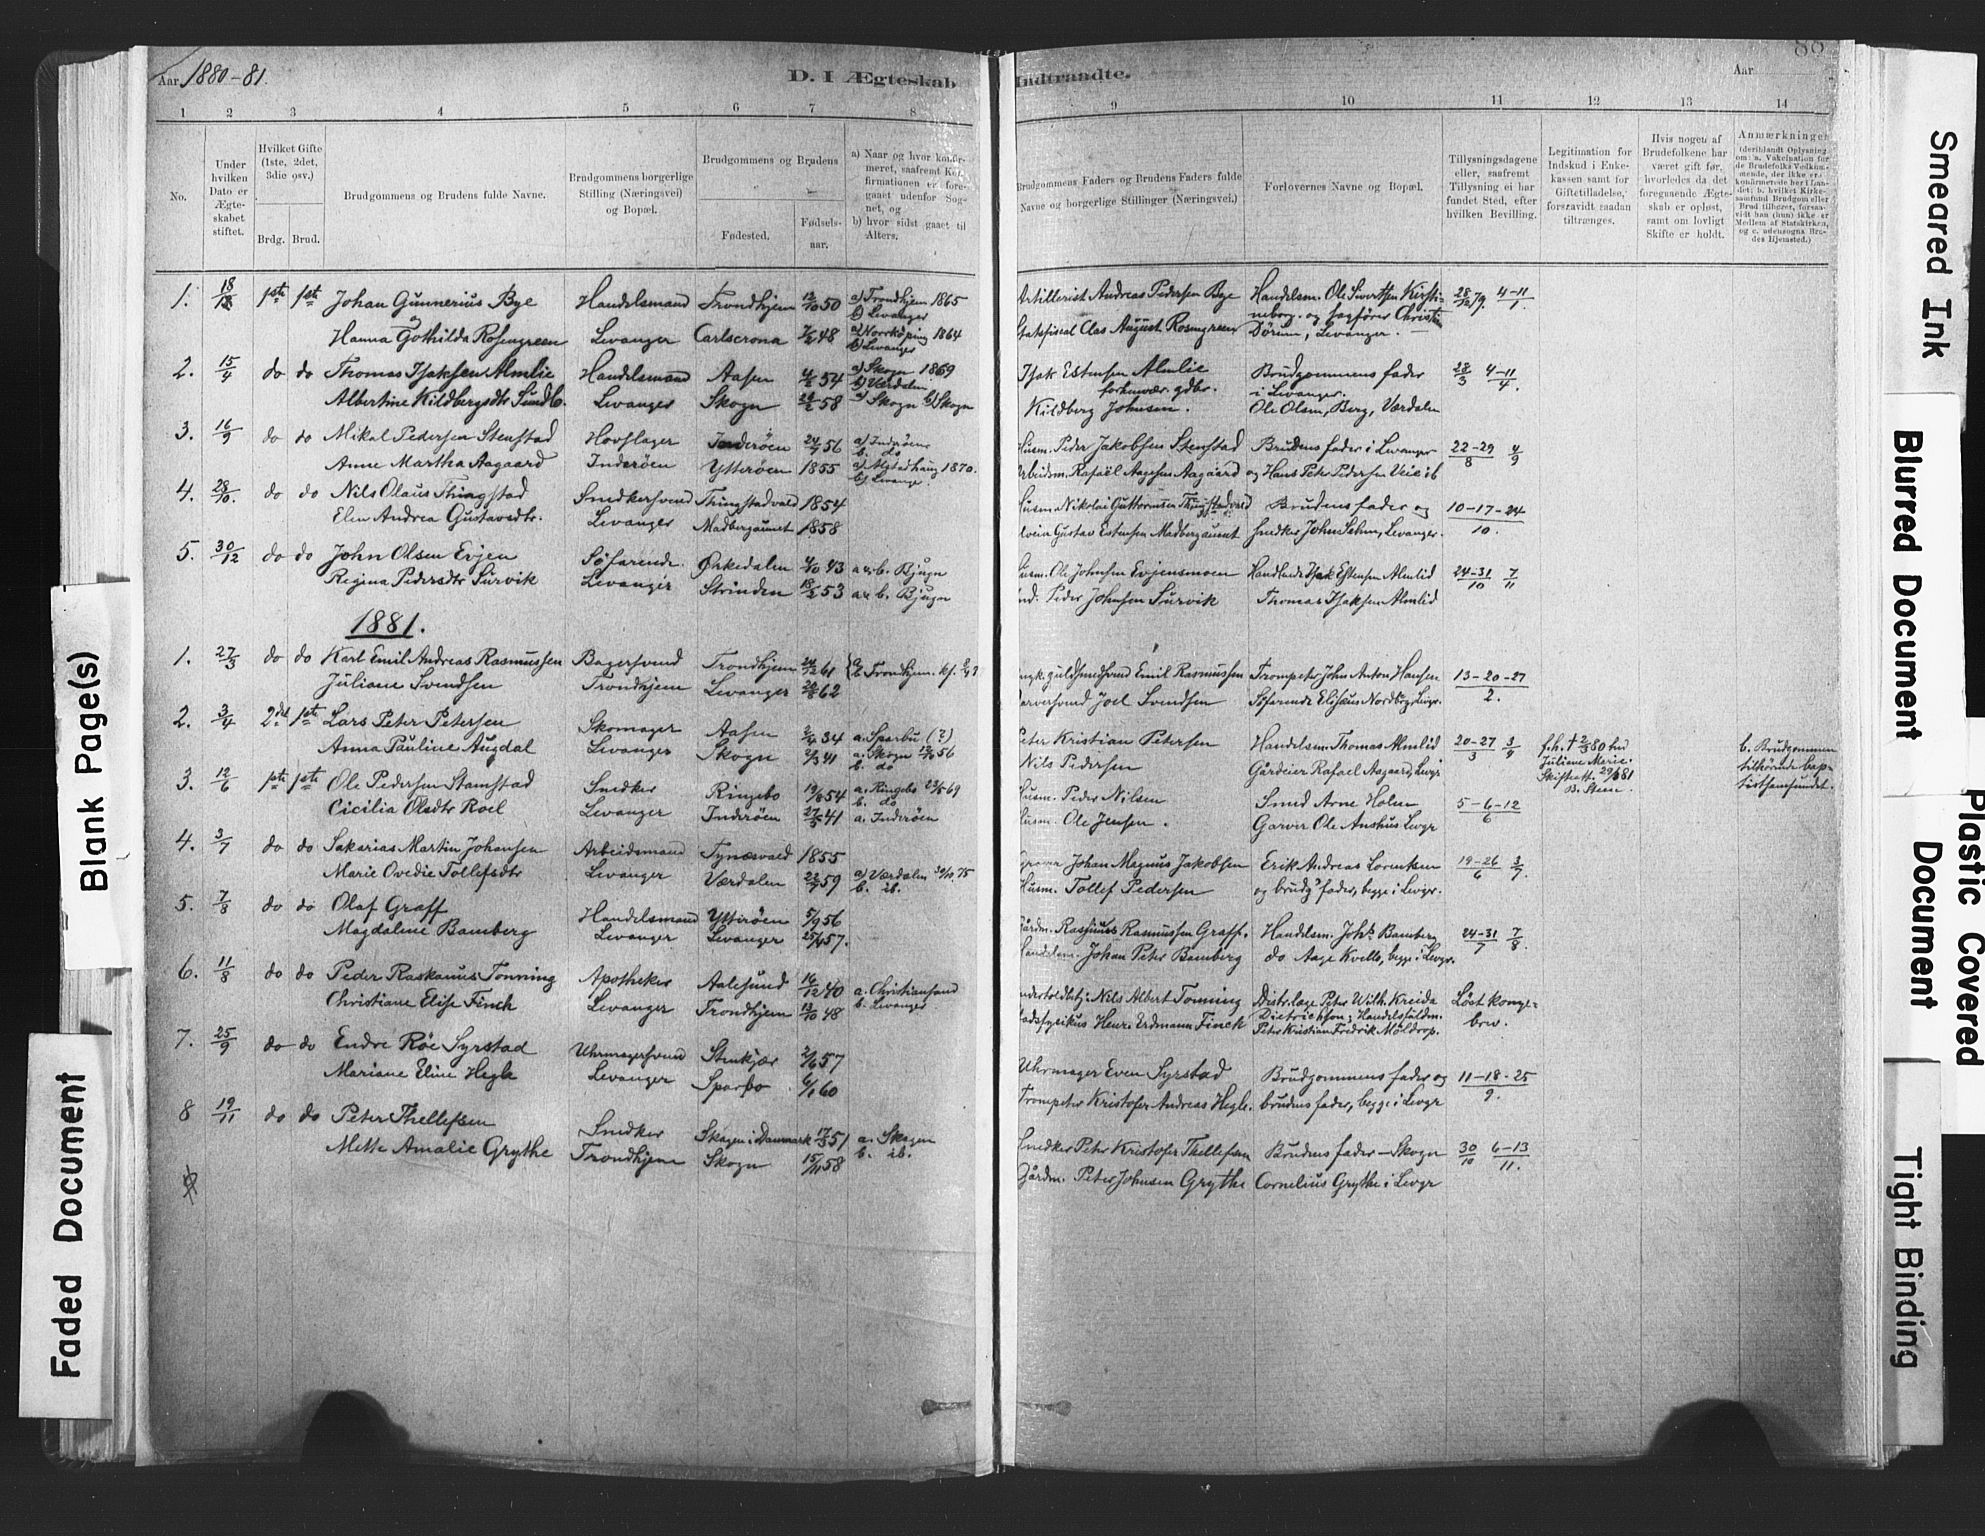 Aar 1880-81.
D. I Ægteskab Indtraadte.
Aar
88
1 2 3 4 5 6 7 8 9 10 11 12 13 14
No.
Under hvilken Dato er Ægteskabet stiftet.
Hvilket Gifte (1ste, 2det, 3die osv.)
Brdg. Brud.
Brudgommens og Brudens fulde Navne.
Brudgommens borgerlige Stilling (Næringsvei) og Bopæl.
Brudgommens og Brudens
Fødested.
Fødselsaar.
a) Naar og hvor konfirmeret, saafremt Konfirmationen er foregaaet udenfor Sognet, og
b) hvor sidst gaaet til Alters.
Brudgommens Faders og Brudens Faders fulde Navne og borgerlige Stillinger (Næringsvei.)
Forlovernes Navne og Bopæl.
Tillysningsdagene eller, saafremt Tillysning ei har fundet Sted, efter hvilken Bevilling.
Legitimation for Indskud i Enkekassen samt for Giftetilladelse, forsaavidt saadan tiltrænges.
Hvis nogen af Brudefolkene har været gift før, hvorledes da det foregaaende Ægteskab er opløst, samt om lovligt Skifte er holdt.
Anmærkninger (deriblandt Oplysning om: a. Vakcination for de Brudefolks Vedkommende, der ikke er konfirmerede her i Landet; b. hvilket Kirkesamfund Brudgom eller Brud tilhører, forsaavidt han (hun) ikke er Medlem af Statskirken, og c. udensogns Brudes Hjemsted.)
1. 1ste 1ste Johan Gunnerius Bye Handelsmand Trondhjem 12/10 50 a) Trondhjem 1865 b) Levanger Artillerist Andreas Pedersen Bye Handelsm. Ole Sivertsen Kirsti- 28/12 79. 4-11/1
Hanna Gothilda Rosengreen Levanger Carlscrona 7/2 48 a) Norrköping 1864 b) Levanger Statsfiscal Clas August Rosengreen neborg. og Sagfører Christian Dørum, Levanger.
2. 15/4 do do Thomas Isaksen Almlie Handelsmand Aasen 54 a) Skogn 1869 b) Værdalen Isak Estensen Almlie forhenvær. gdbr. Brudgommens fader i Levanger. 28/3 4-11/4.
Albertine Kildbergsdtr Sundb. Levanger Skogn 58 a) Skogn b) Skogn Kildberg Johnsen. Ole Olsen, Berg, Værdalen
3. 16/9 do do Mikal Pedersen Stenstad Hovslager Inderöen 56 a) Inderöen b. do Husm. Peder Jakobsen Stenstad Brudens fader i Levanger 22-29/8 4/9
Anne Martha Aagaard Inderöen Ytteröen 1855 a) Alstadhaug 1870. b) Levanger. Arbeidsm. Rafaël Aagesen Aagaard og Hans Peter Pedersen Veie ib
4. 28/10. do do Nils Olaus Thingstad Snedkersvend Thingstadvald 1854 Husm. Nikolai Guttormsen Thingstadvald Brudens fader og 10-17-24/10.
Elen Andrea Gustavsdtr. Levanger Madbergaunet 1858 Gustav Estensen Madbergaunet Snedker John Salen, Levanger.
5. 30/12 do do John Olsen Evjen Søfarende. Ørkedalen 4/10 43 a. b. Bjugn Husm. Ole Johnsen Evjensmoen Handlende Isak Estensen Almlid 24-31/10 7/11
Regina Pedersdtr Survik Levanger Strinden 53 a. b. Bjugn Peder Johnsen Survik Thomas Isaksen Almlid
1881.
1. 27/3 do do Karl Emil Andreas Rasmussen Bagersvend Trondhjem 61 Trondhjem. guldsmedsvend Emil Rasmussen Trompeter John Anton Hansen 13-20-27/2.
Juliane Svendsen Trondhjem Levanger 62 Garversvend Joel Svendsen Søfarende Elisæus Nordberg, Levgr.
2. 3/4 2det 1ste Lars Peter Petersen Skomager Aasen 34 a. Sparbu (?) Peter Kristian Petersen Handelsm. Thomas Almlid 20-27/3 f.h. † 80 hed Juliane Marie. Skifteatt. 81 B. Steen. b. Brudgommen tilhörende baptistsamfundet.
Anna Pauline Augdal Levanger Skogn 2/3 41 a. Skogn 56 b. do Nils Pedersen Gårdeier Rafael Aagaard, Levgr
3. 12/6 1ste 1ste Ole Pedersen Stamstad Snedker Ringebo 19/8 54 a. Ringebo 69 b. do Husm. Peder Nilsen Smed Arne Holm 5-6-12/6
Cicilia Olsdtr Roel Levanger Inderöen 41 a. Inderöen Husm. Ole Jensen. Garver Ole Aushus Levgr
4. 3/7 do do Sakarias Martin Johansen Arbeidsmand Tynæsvald 1855 Johan Magnus Jakobsen Erik Andreas Lorentsen 19-26/6 3/7.
Marie Ovedie Tollefsdtr Levanger Værdalen 59 a) Værdalen 75 b. ib. Husm. Tollef Pedersen og brudgs fader, begge i Levgr.
5. 7/8 do do Olaf Graff Handelsmand Ytteröen 5/9 56 Gårdm. Rasmus Rasmussen Graff. Handelsm. Johs. Bamberg 24-31/7 7/8.
Magdaline Bamberg Levanger Levanger 57. Handelsm. Johan Peter Bamberg do Aage Kvello, begge i Levgr.
6. 11/8 do do Peder Raskanus Tonning Apotheker Aalesund 16/12 40 a. Christianssand b. Levanger Nils Albert Tonning Distr.læge Peter Wilh. Kreidal Dietrichson; Handelsfuldm. Løst kongebrev.
Christiane Elise Finck Levanger Trondhjem 12/10 48 Stadsfysikus Henr. Erdmann Finck Peter Kristian Fredrik Möldrop.
7. 25/9 do do Endre Röe Syrstad Uhrmagersvend Stenkjær 57 Uhrmager Even Syrstad Brudgommens fader og 11-18-25/9.
Mariane Eline Hegle Levanger Sparbo 6/1 60 Trompeter Kristofer Andreas Hegle. brudens fader, begge i Levgr
8 19/11 do do Peter Thellefsen Snedker Skagen i Danmark 51 a. Skagen b. ib. Snedker Peter Kristofer Thellefsen Brudens fader - Skogn 30/10 6-13/11.
Mette Amalie Grythe Trondhjem Skogn 15/11 58 Gårdm. Peter Johnsen Grythe Cornelius Grythe i Levgr
Blank Page(s)
Faded Document
Smeared Ink
Blurred Document
Plastic Covered Document
Tight Binding